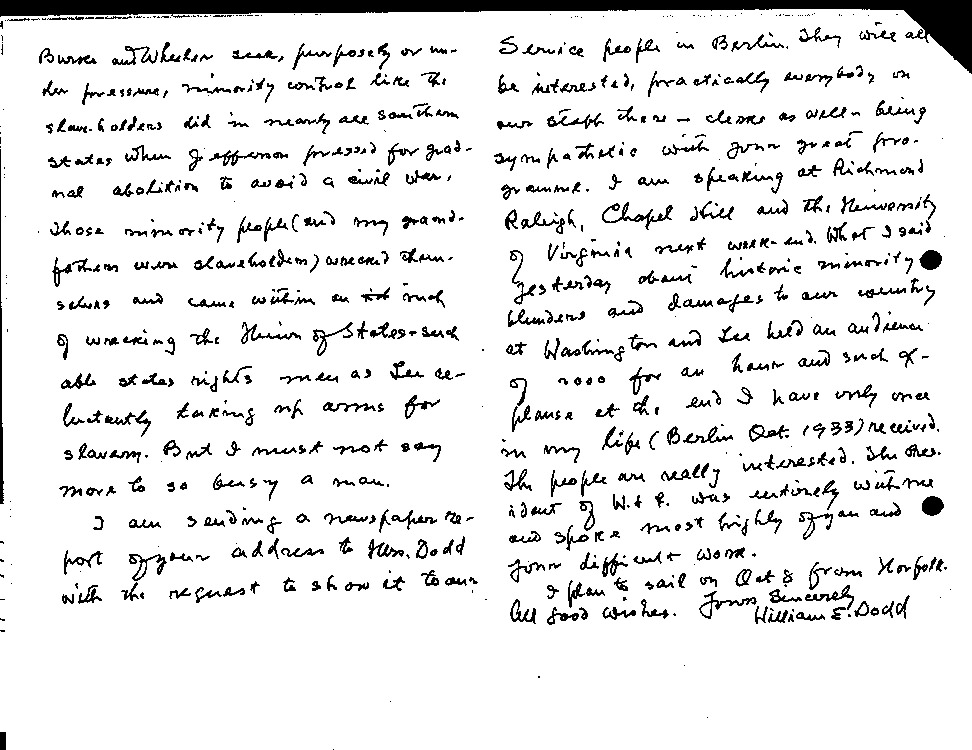 Burke and Wheeler seek, purposely or un-
der pressure, minority control like the
slave-holders did in nearly all southern
states when Jefferson pressed for grad-
ual abolition to avoid a civil war.
Those minority people (and my grand-
fathers were slaveholders) wrecked them-
selves and came within an inch
of wrecking the Union of States - such
able states rights men as Lee re-
luctantly taking up arms for
slavery. But I must not say
more to so busy a man.
I am sending a newspaper re-
port of your address to Mrs. Dodd
with the request to show it to our
Service people in Berlin. They will all
be interested, practically everybody on
our staff there - clerks as well - being
sympathetic with your great pro-
gramme. I am speaking at Richmond
Raleigh, Chapel Hill and the University
of Virginia next week-end. What I said
yesterday about historic minority
blunders and damages to our country
at Washington and Lee held an audience
of 2000 for an hour and such ap-
plause at the end I have only once
in my life (Berlin Oct. 1933) received.
The people are really interested. The Pres-
ident of W. & L. was entirely with me
and spoke most highly of you and
your difficult work.
I plan to sail on Oct 8 from Norfolk.
All good wishes. Yours Sincerely
William E. Dodd